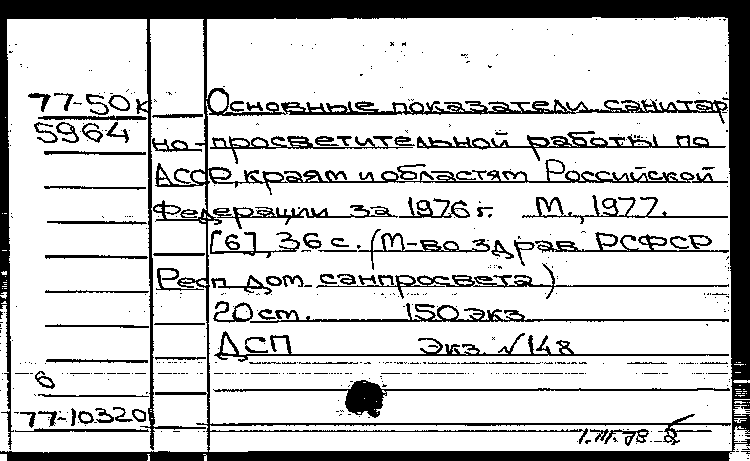 77-50к Основные показатели санитар
5964 но-просветительной работы по
АССР, краям и областям Российской
Федерации за 1976 г. М., 1977.
[6], 36 с. (М-во здрав. РСФСР
Респ. дом санпросвета)
20 см. 150 экз.
ДСП Экз. №148
б
77-10320
1.III.78